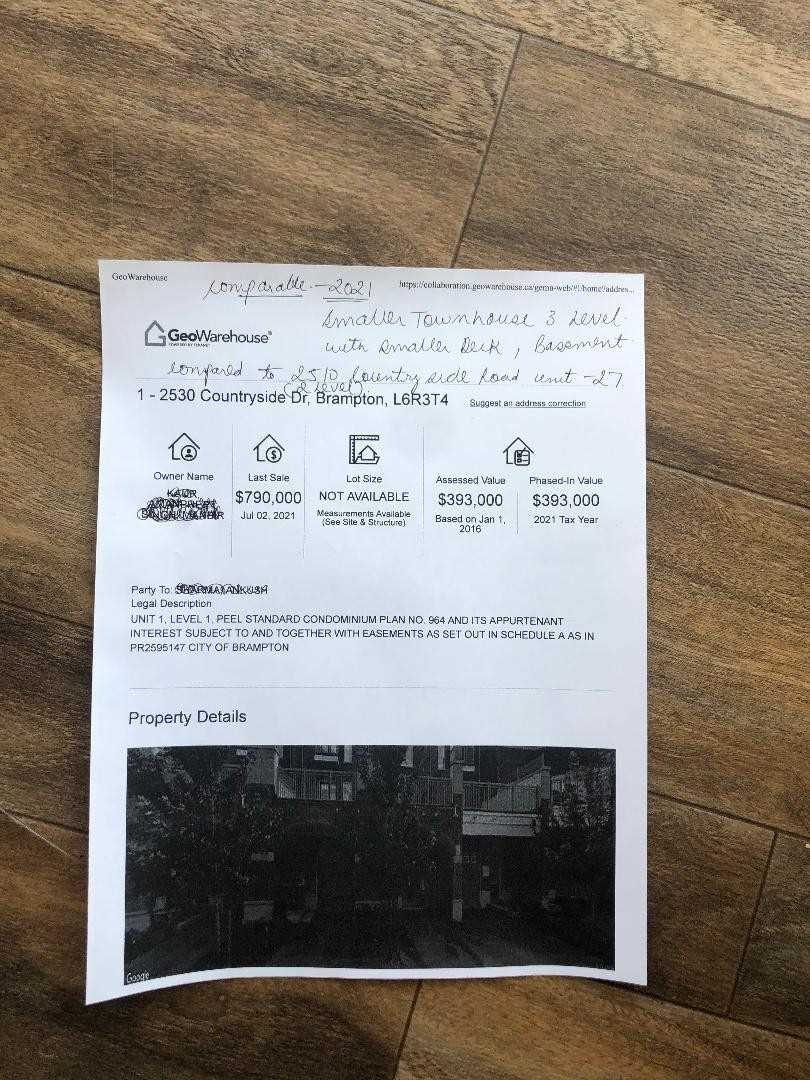 GeoWarehouse
comparable - 2021
https://collaboration.geowarehouse.ca/gema-web/#!/home?addres...
Smaller Townhouse 3 Level
GeoWarehouse®
POWERED BY TERANET
with smaller Deck, Basement
compared to 2510 Countryside Road unit - 27
(2 level)
1 - 2530 Countryside Dr, Brampton, L6R3T4
Suggest an address correction
Owner Name
Last Sale
$790,000
Jul 02, 2021
Lot Size
NOT AVAILABLE
Measurements Available
(See Site & Structure)
Assessed Value
$393,000
Based on Jan 1,
2016
Phased-In Value
$393,000
2021 Tax Year
Party To:
Legal Description
UNIT 1, LEVEL 1, PEEL STANDARD CONDOMINIUM PLAN NO. 964 AND ITS APPURTENANT
INTEREST SUBJECT TO AND TOGETHER WITH EASEMENTS AS SET OUT IN SCHEDULE A AS IN
PR2595147 CITY OF BRAMPTON
Property Details
Google